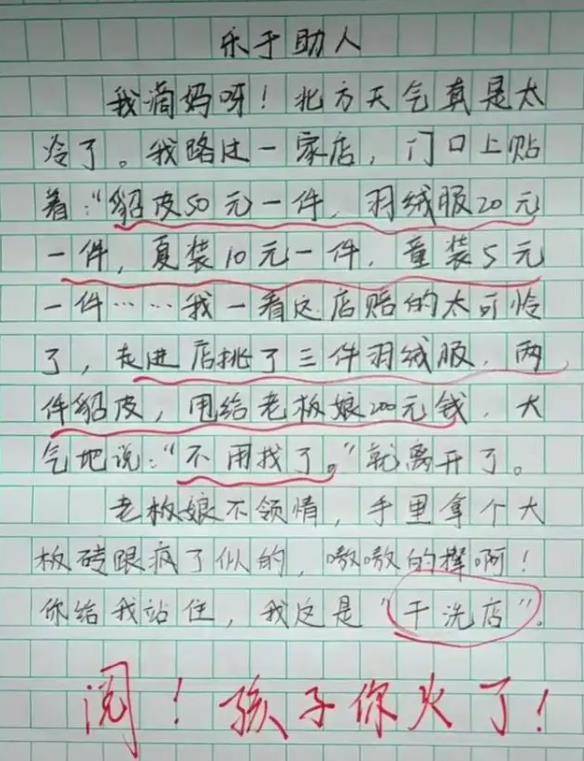 乐于助人
我滴妈呀！北方天气真是太
冷了。我路过一家店，门口上贴
着：“貂皮50元一件，羽绒服20元
一件，夏装10元一件，童装5元
一件……我一看这店赔的太可怜
了，走进店挑了三件羽绒服，两
件貂皮，甩给老板娘200元钱，大
气地说：“不用找了。”就离开了。
老板娘不领情，手里拿个大
板砖跟疯了似的，嗷嗷的撵啊！
你给我站住，我这是“干洗店”。
阅！孩子你火了！